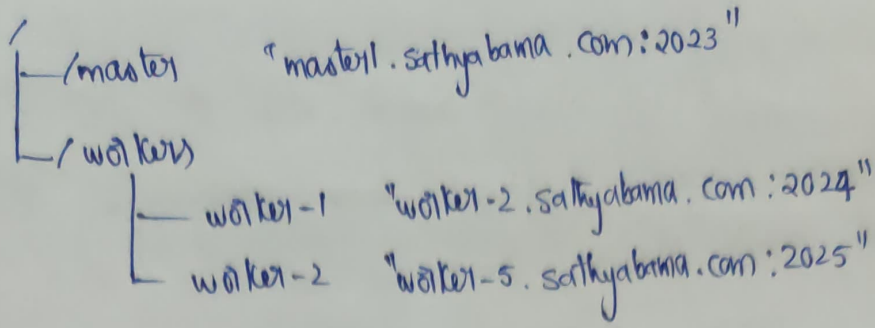 /
/master "master1.sathyabama.com:2023"
/workers
worker-1 "worker-2.sathyabama.com:2024"
worker-2 "worker-5.sathyabama.com:2025"